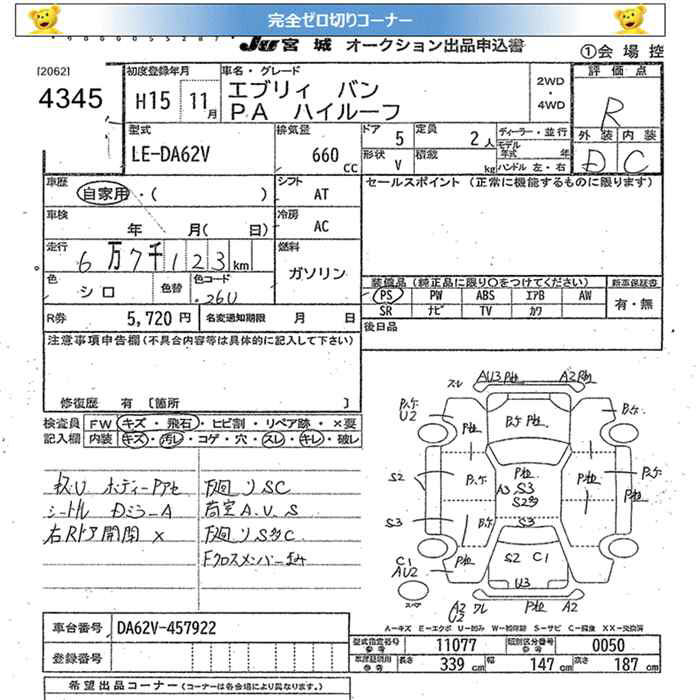 完全ゼロ切りコーナー
JU 宮城 オークション出品申込書
①会場控
[2062]
4345
初度登録年月
H15 11月
車名・グレード
エブリィ バン
PA ハイルーフ
2WD・4WD
評価点
R
外装 内装
D C
型式
LE-DA62V
排気量
660cc
ドア 5
定員 2人
ディーラー・並行
モデル年式 年
形状 V
積載 kg
ハンドル 左・右
車歴
自家用・( )
シフト
AT
セールスポイント (正常に機能するものに限ります)
車検
年 月(日)
冷房
AC
走行
6万7千123km
燃料
ガソリン
色
シロ
色替
色コード
26U
装備品(純正品に限り○をつけてください)
新車保証書
PS PW ABS エアB AW
SR ナビ TV カワ
有・無
R券 5,720円
名変通知期限 月 日
後日品
注意事項申告欄(不具合内容等は具体的に記入して下さい)
修復歴 有 [箇所 ]
検査員記入欄
FW キズ・飛石・ヒビ割・リペア跡・×要
内装 キズ・汚レ・コゲ・穴・スレ・キレ・破レ
下廻りSC
荷室A.U.S
右Rドア開閉×
下廻りS多C
スレ AU3 P他 A2
U2
P他
S2
A3 S3
S2多
S3
S3
S2 C1
U3
C1
AU2
スペア
A2
U2
ワレ P他 A2
A-キズ E-エクボ U-凹み W-補修跡 S-サビ C-腐食 XX-交換済
車台番号 DA62V-457922
登録番号
型式指定番号 参考 11077
類別区分番号 参考 0050
長さ 339cm 幅 147cm 高さ 187cm
希望出品コーナー(コーナーは各会場により異なります。)